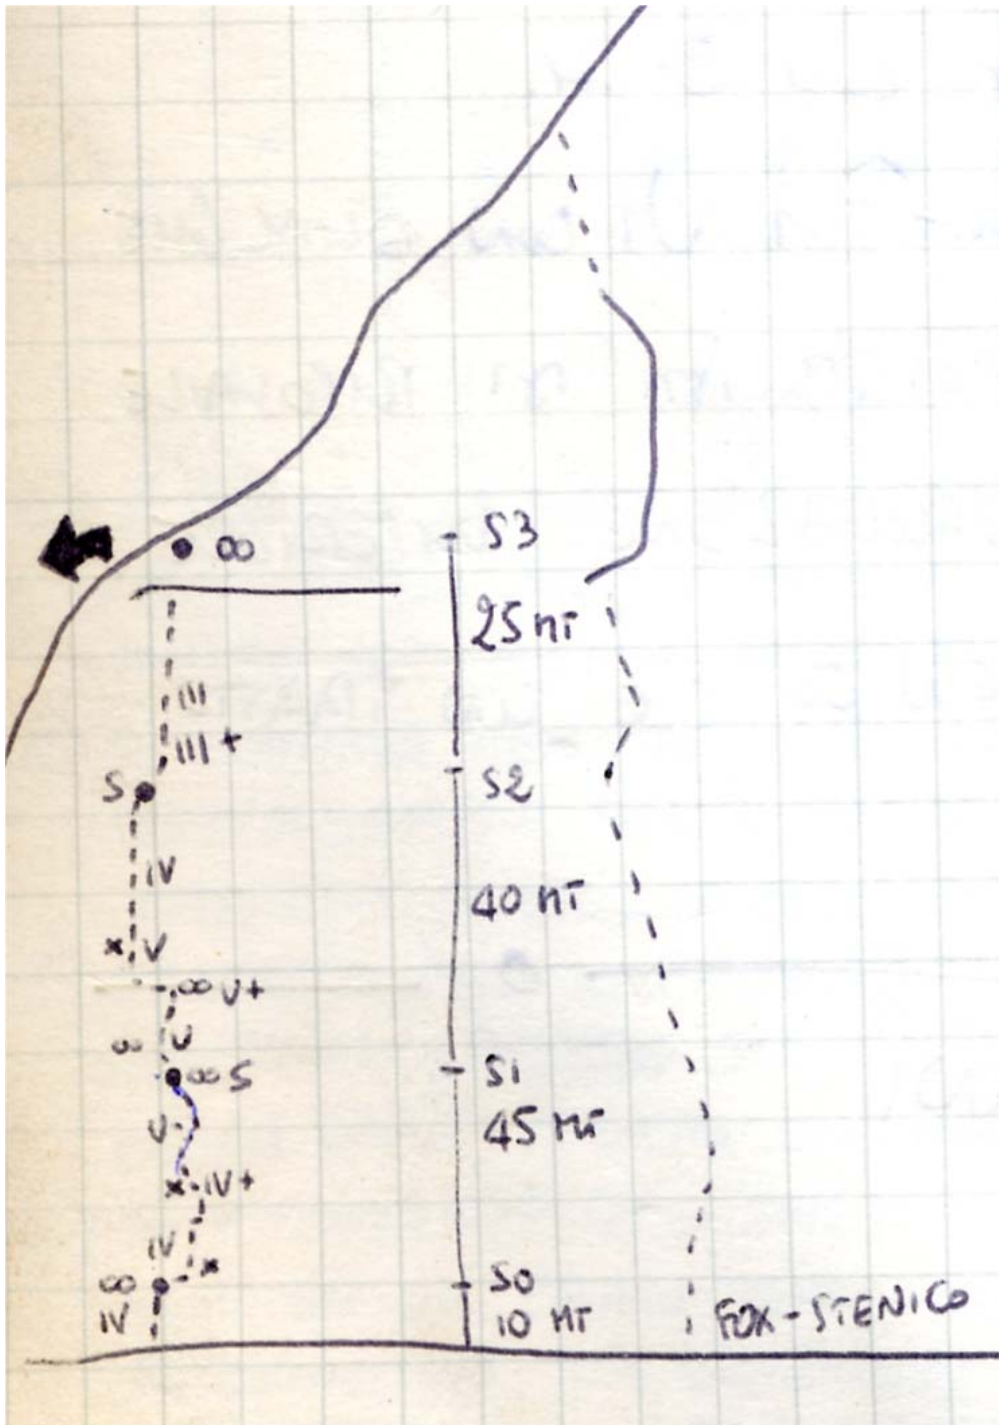 ∞ S3
25 MT
III
III +
S S2
IV
40 MT
x V
∞ V+
∞ V
∞ S S1
V 45 MT
x IV+
IV
x
∞ S0
IV 10 MT FOX-STENICO